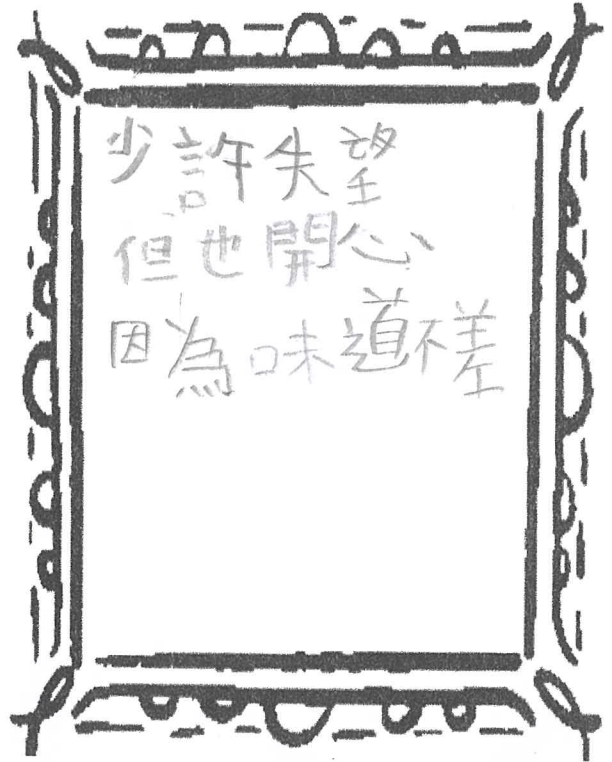 少許失望
但也開心
因為味道不差